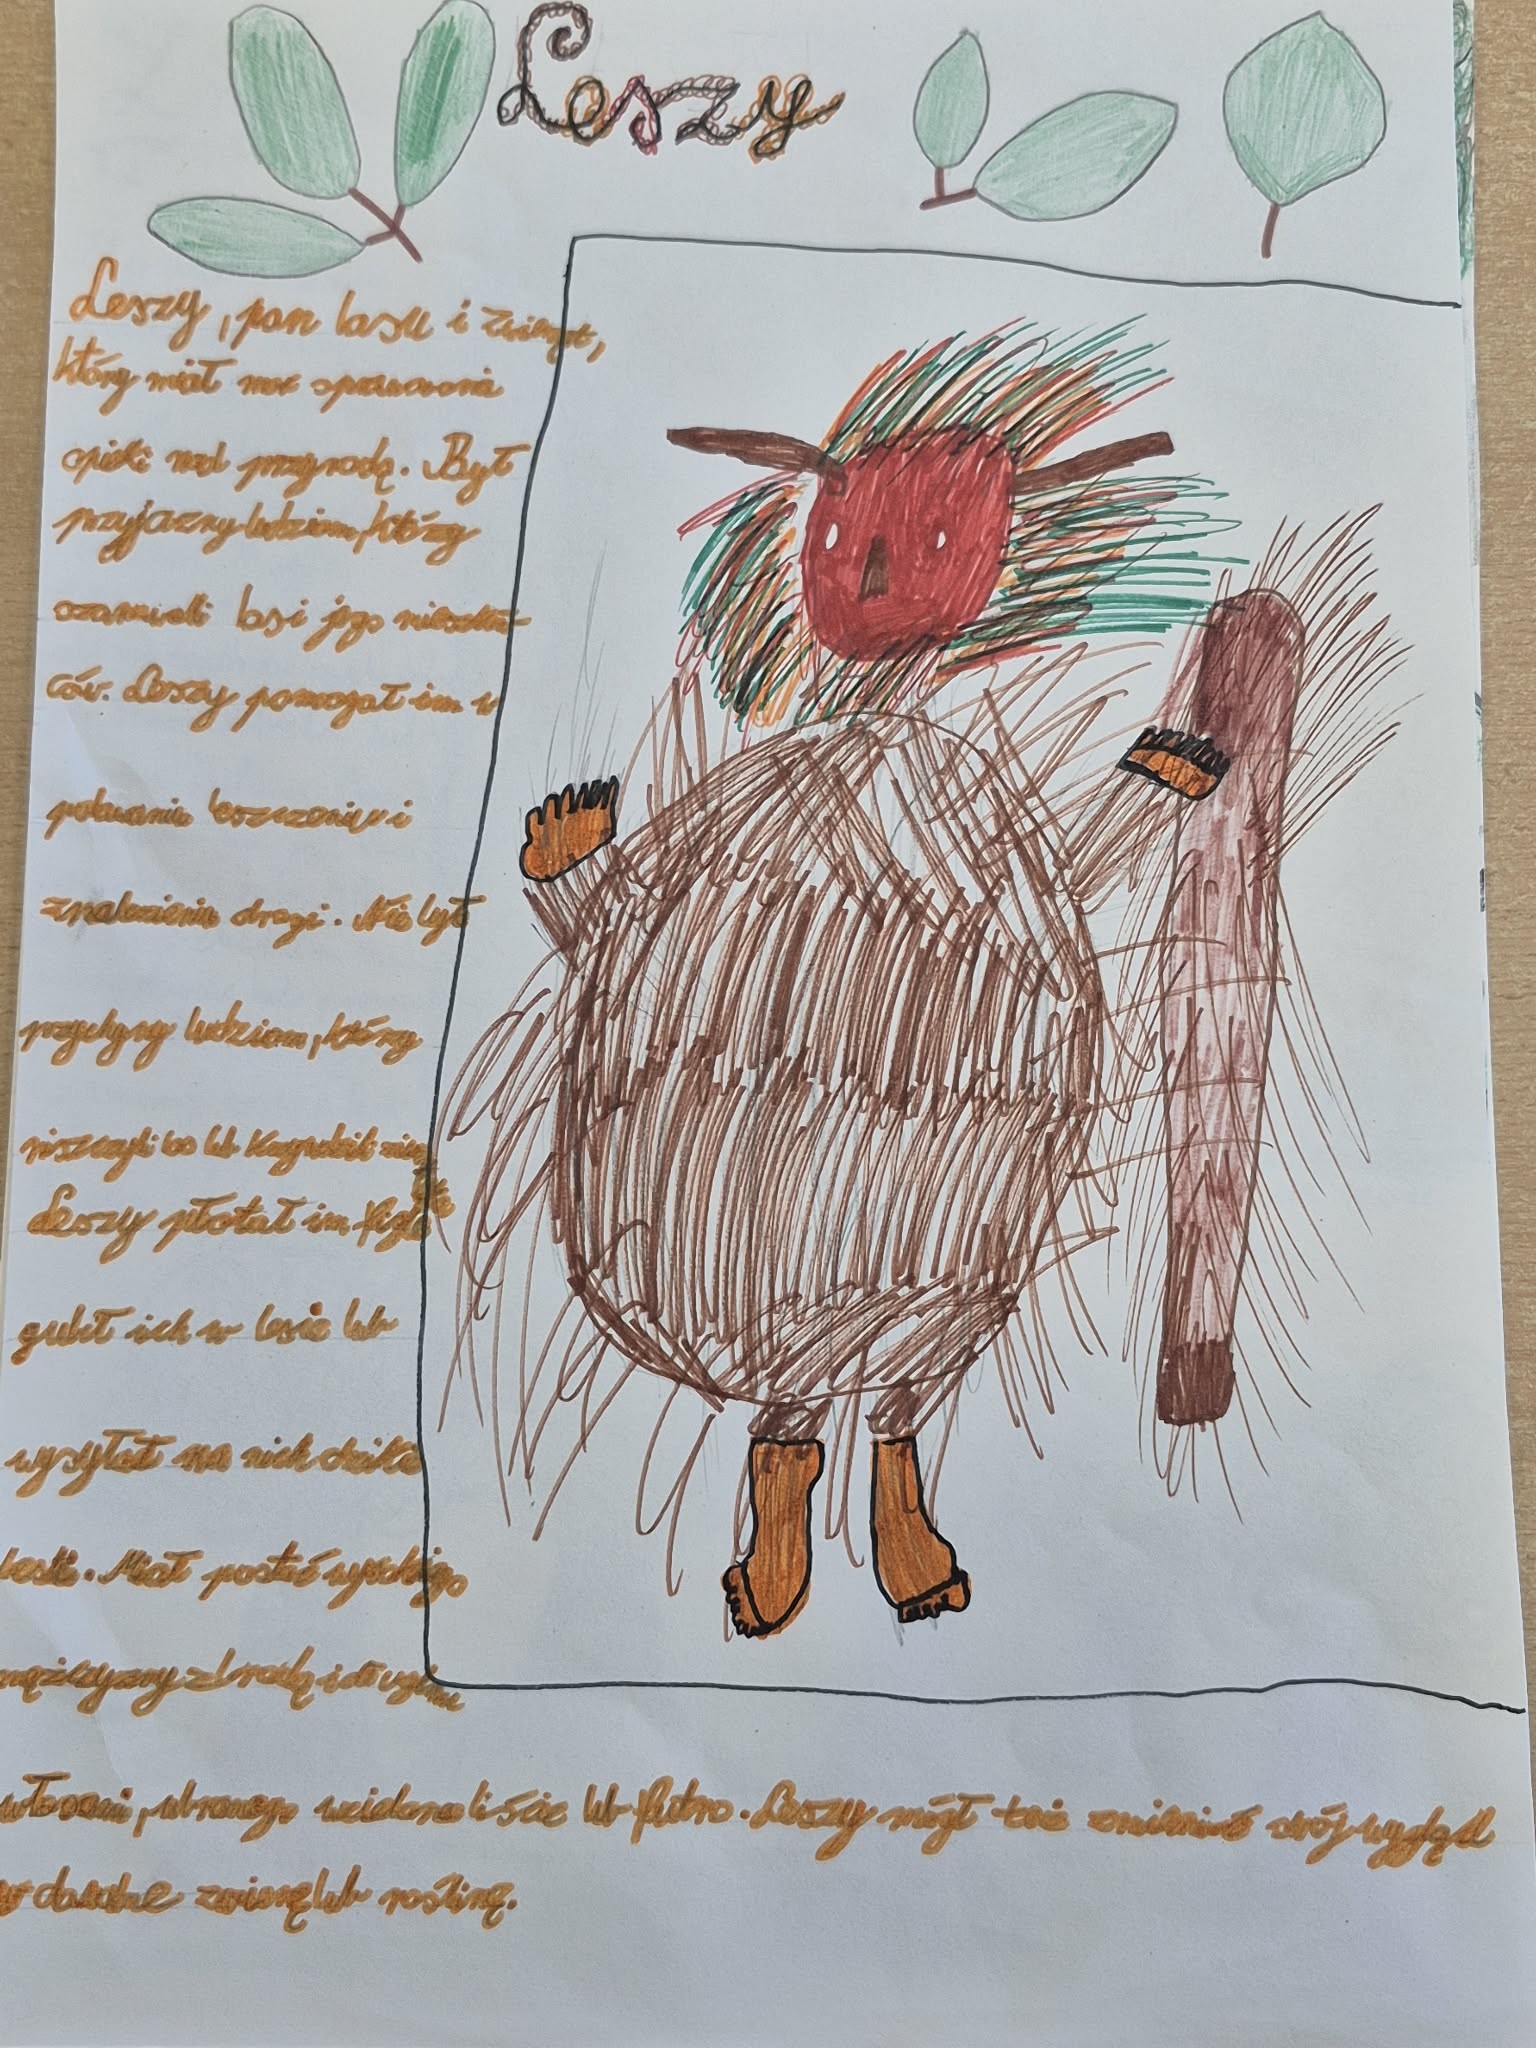 Leszy
Leszy, pan lasu i zwierząt,
który miał moc sprawowania
opieki nad przyrodą. Był
przyjazny ludziom, którzy
szanowali las i jego mieszkań-
ców. Leszy pomagał im w
polowaniu leszczonych i
znalezieniu drogi. Nie był
przychylny ludziom, którzy
niszczyli las lub krzywdzili
Leszy płatał im figle
gubił ich w lesie lub
wysyłał na nich dzikie
bestie. Miał postać wysokiego
mężczyzny z brodą i długimi
włosami, ubranego w zielone liście lub futro. Leszy mógł też zmienić swój wygląd
w dowolne zwierzę lub roślinę.